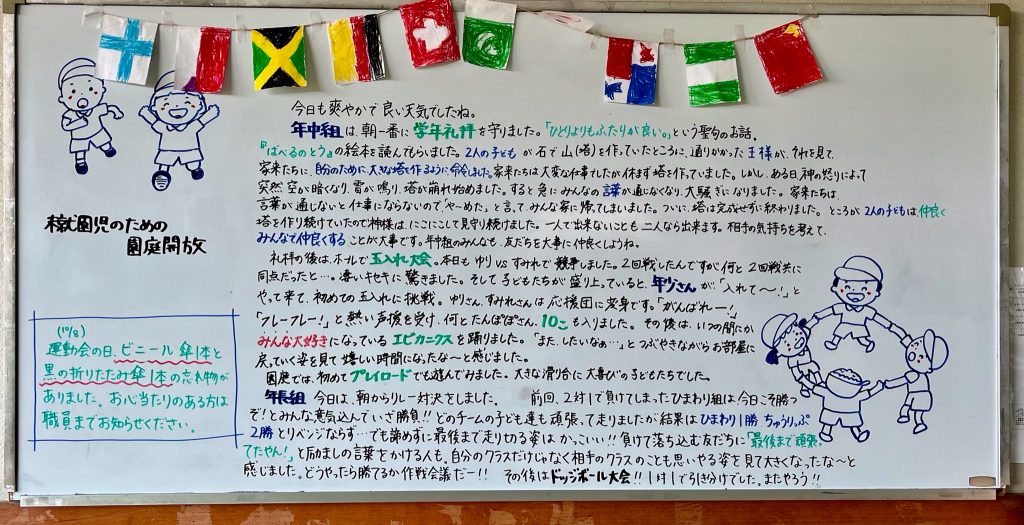 今日も爽やかで良い天気でしたね。
年中組は、朝一番に学年礼拝を守りました。「ひとりよりもふたりが良い。」という聖句のお話。
『ばべるのとう』の絵本を読んでもらいました。2人の子どもが石で山(塔)を作っていたところに、通りかかった王様が、それを見て、
家来たちに、自分のために大きな塔を作るように命令しました。家来たちは大変な仕事でしたが休まず塔を作っていました。しかし、ある日、神の怒りによって
突然、空が暗くなり、雷が鳴り、塔が崩れ始めました。すると急にみんなの言葉が通じなくなり、大騒ぎになりました。家来たちは
言葉が通じないと仕事にならないので、「や〜めた」と言って、みんな家に帰ってしまいました。ついに、塔は完成せずに終わりました。ところが2人の子どもは、仲良く
塔を作り続けていたので神様は、にこにこして見守り続けました。一人で出来ないことも二人なら出来ます。相手の気持ちを考えて、
みんなで仲良くすることが大事です。年中組のみんなも、友だちを大事に仲良くしようね。
礼拝の後は、ホールで玉入れ大会。本日もゆりvsすみれで競争しました。2回戦したんですが何と2回戦共に
同点だったと…。凄いキセキに驚きました。そして子どもたちが盛り上っていると、年少さんが「入れて〜!」と
やって来て、初めての玉入れに挑戦。ゆりさん、すみれさんは応援団に変身です。「がんばれー!」
「フレーフレー!」と熱い声援を受け、何とたんぽぽさん、10こも入りました。その後は、いつの間にか
みんな大好きになっているエビカニクスを踊りました。「また、したいなぁ…」とつぶやきながらお部屋に
戻っていく姿を見て嬉しい時間になったな〜と感じました。
園庭では、初めてプレイロードでも遊んでみました。大きな滑り台に大喜びの子どもたちでした。
年長組 今日は、朝からリレー対決をしました。 前回、2対1で負けてしまったひまわり組は今日こそ勝つ
ぞ!とみんな意気込んでいざ勝負!!どのチームの子ども達も頑張って走りましたが結果はひまわり1勝ちゅうりっぷ
2勝とリベンジならず…でも諦めずに最後まで走り切る姿はかっこいい!!負けて落ち込む友だちに「最後まで頑張っ
てたやん!」と励ましの言葉をかける人も。自分のクラスだけじゃなく相手のクラスのことも思いやる姿を見て大きくなったな〜と
感じました。どうやったら勝てるか作戦会議だー!! その後はドッジボール大会!!1対1で引き分けでした。またやろう!!
園児のための
園庭開放
(10/8)
運動会の日、ビニール傘1本と
黒の折りたたみ傘1本の忘れ物が
ありました。お心当たりのある方は
職員までお知らせください。